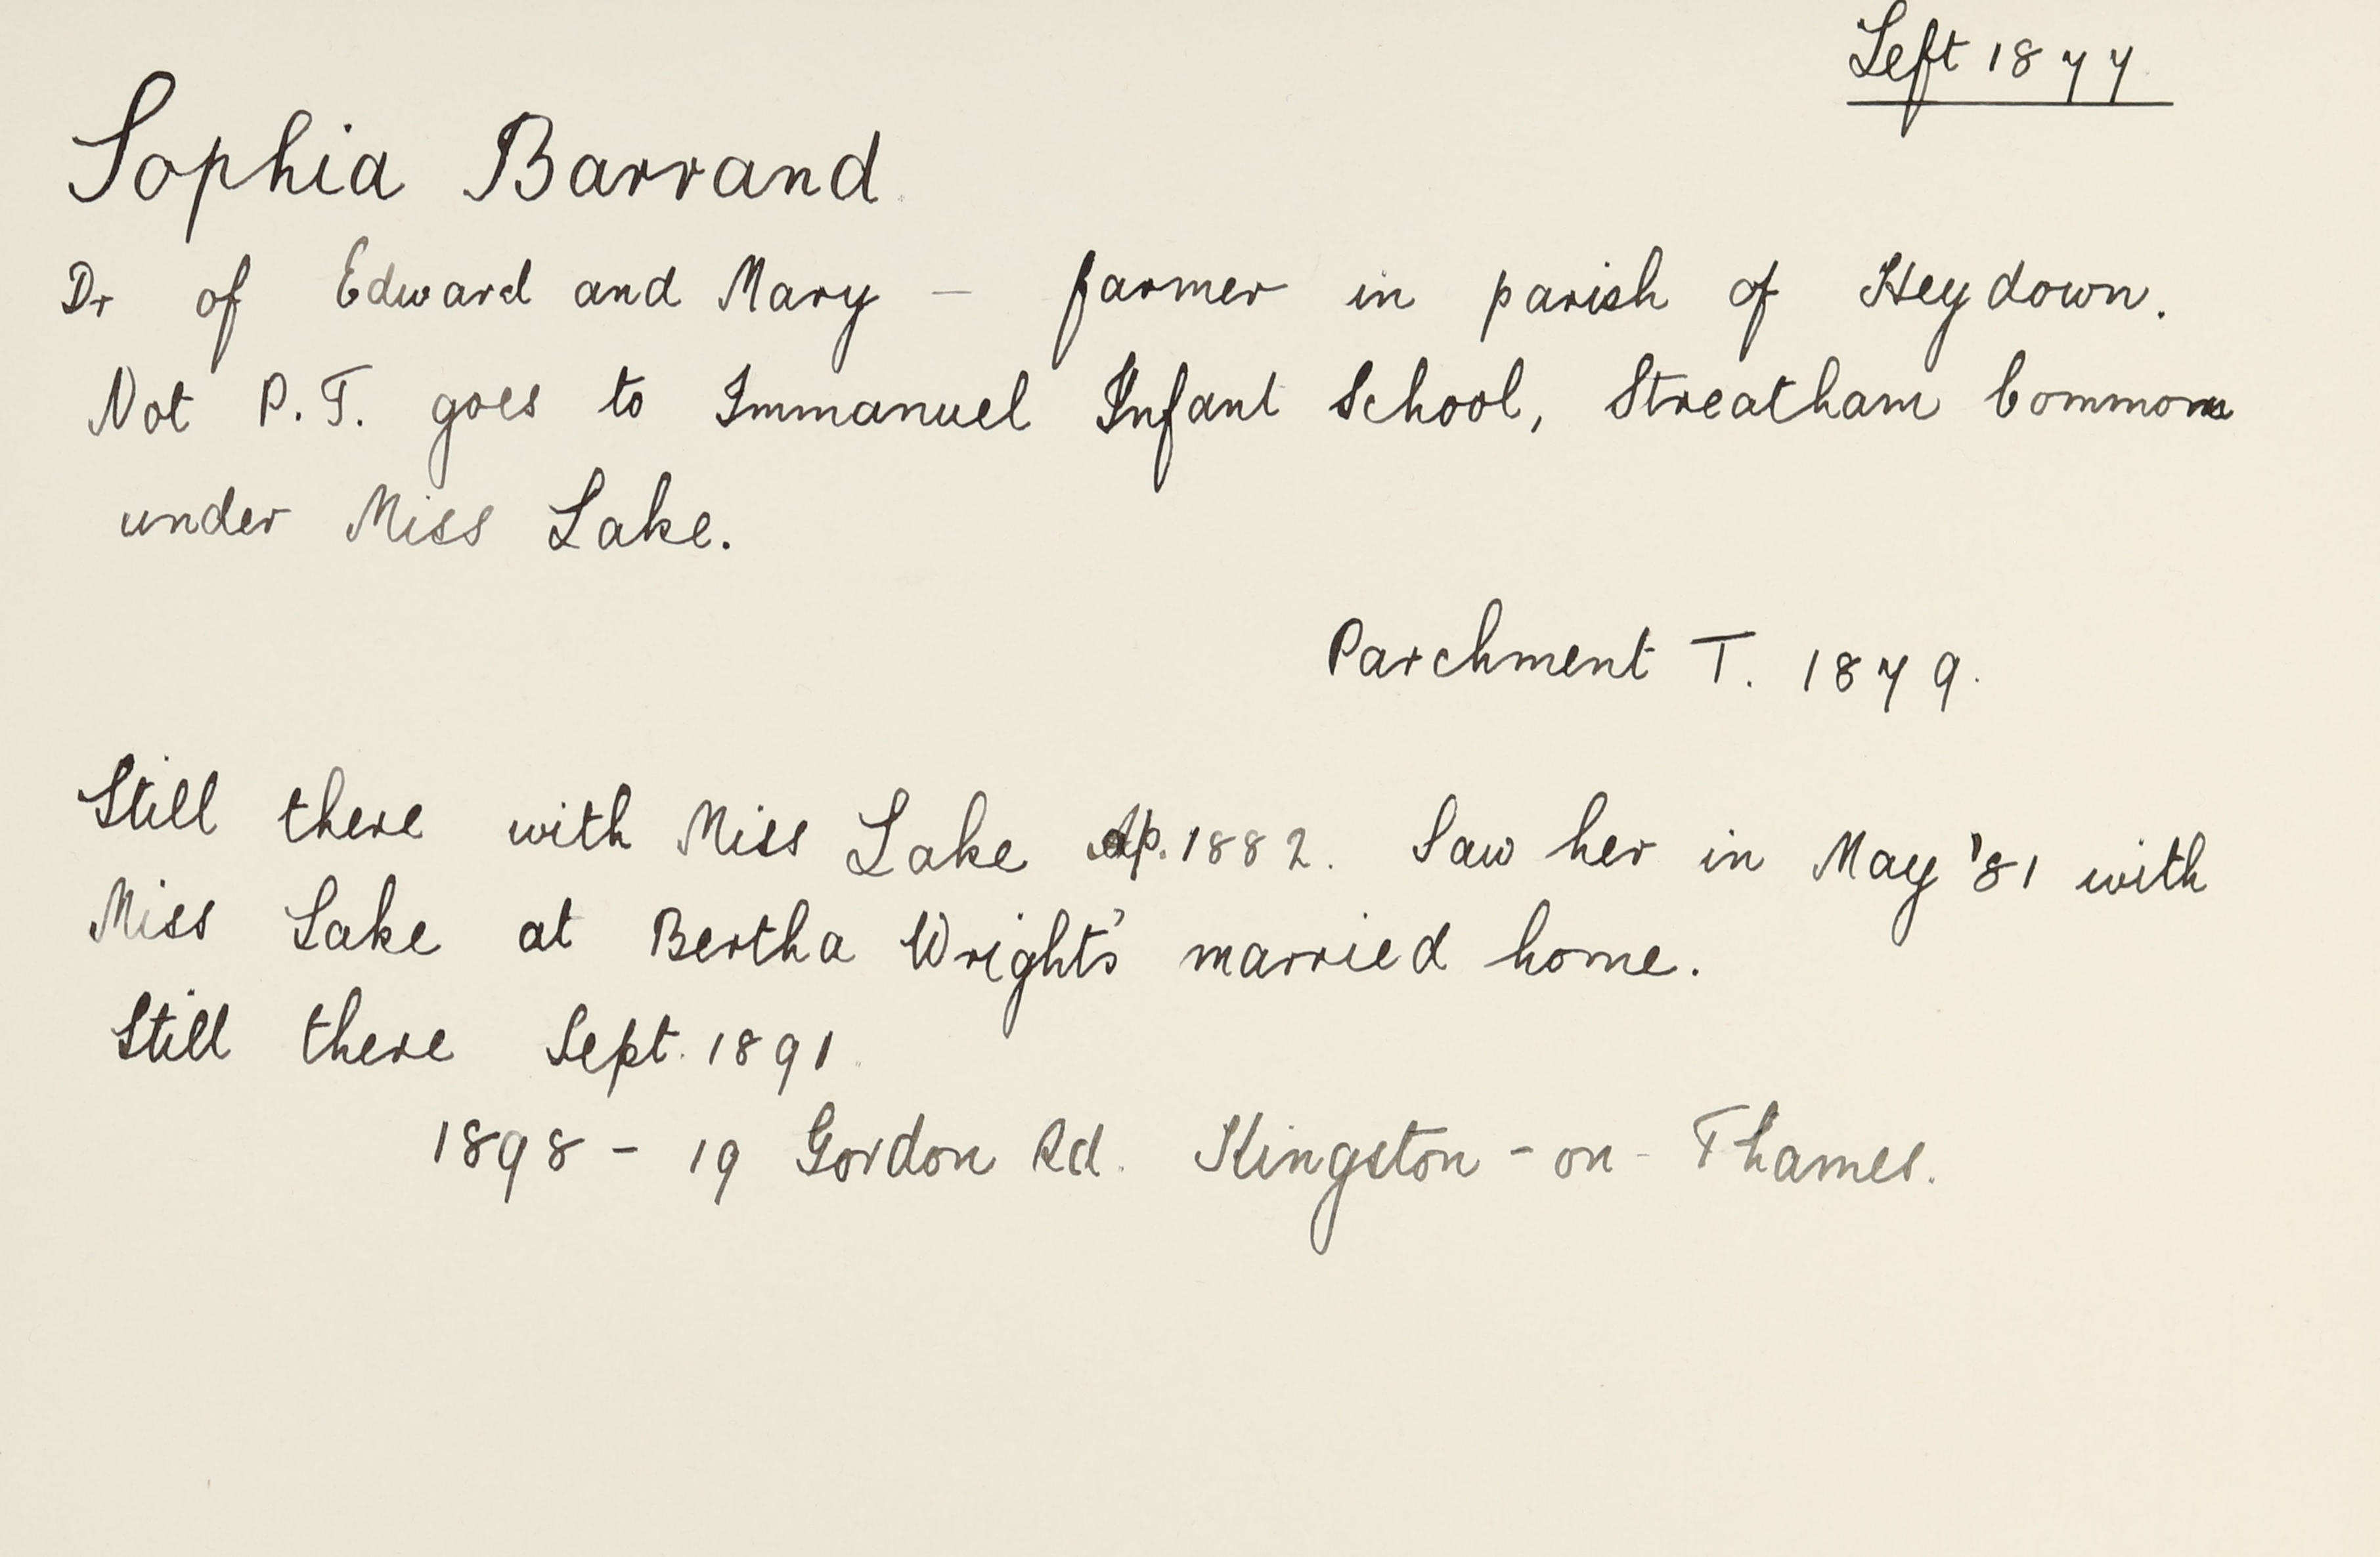 Left 1877
Sophia Barrand
Dr of Edward and Mary — farmer in parish of Heydown.
Not P.T. goes to Immanuel Infant School, Streatham Common
under Miss Lake.
Parchment T. 1879.
Still there with Miss Lake Ap. 1882. Saw her in May '81 with
Miss Lake at Bertha Wright's married home.
Still there Sept. 1891
1898 - 19 Gordon Rd. Kingston-on-Thames.